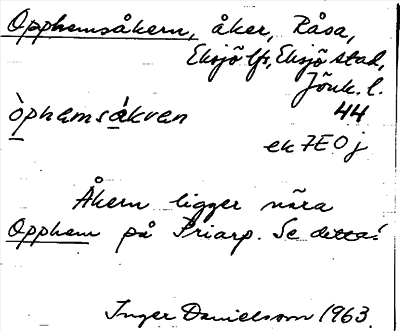 Opphemsåkern, åker, Råsa,
Eksjö lfs, Eksjö stad,
Jönk. l.
òphemsákren 44
ek 7E0j
Åkern ligger nära
Opphem på Priarp. Se detta!
Inger Danielsson 1963.